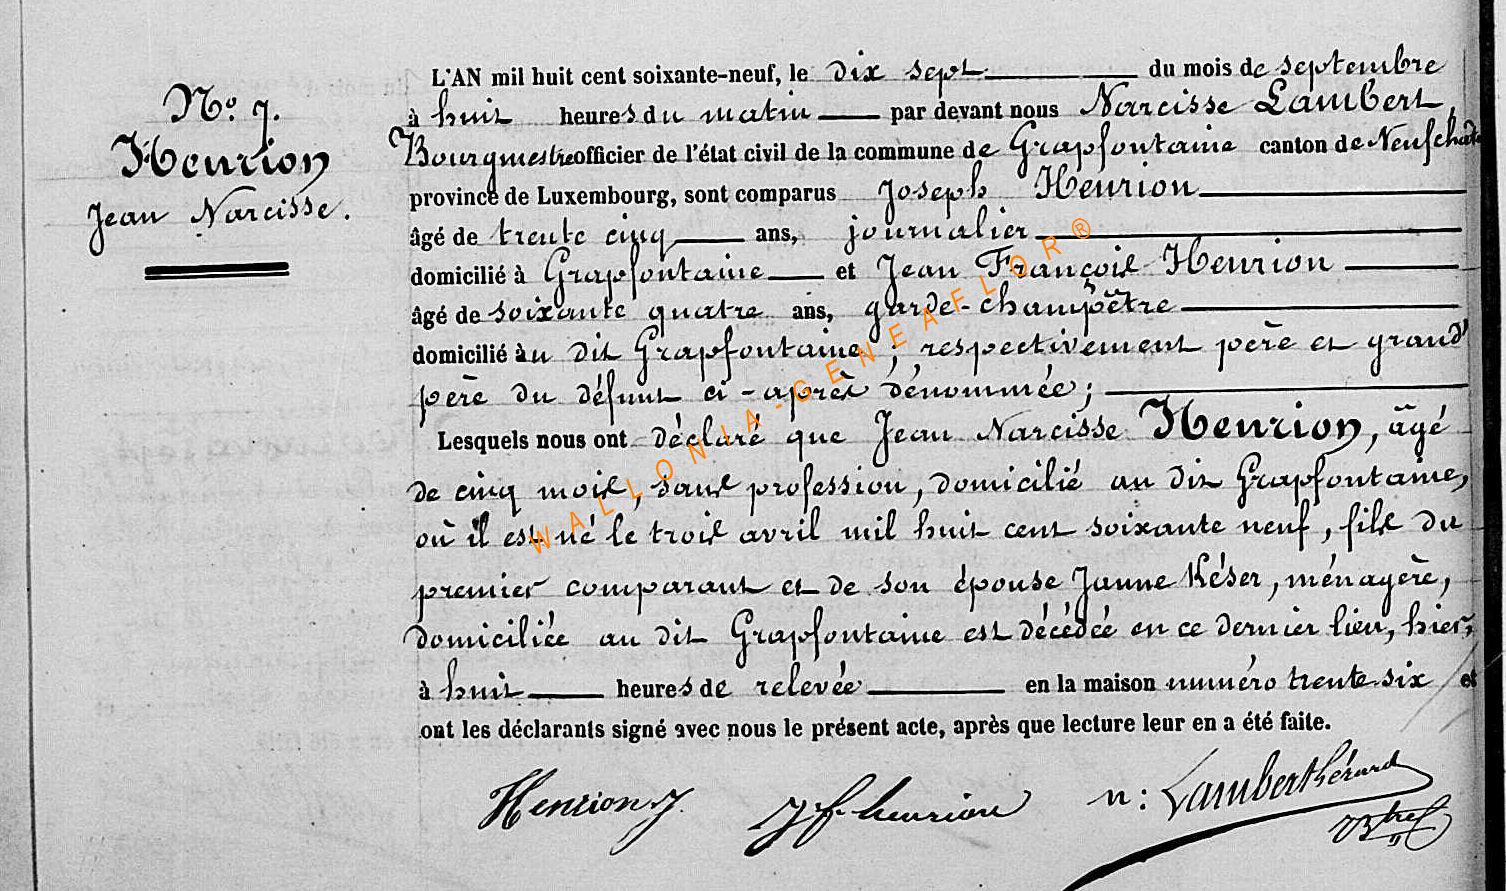 N.o 9.
Henrion
Jean Narcisse.
L'AN mil huit cent soixante-neuf, le dix sept du mois de septembre
à huit heures du matin par devant nous Narcisse Lambert,
Bourgmestre officier de l'état civil de la commune de Grapfontaine canton de Neufchâte
province de Luxembourg, sont comparus Joseph Henrion
âgé de trente cinq ans, journalier
domicilié à Grapfontaine et Jean François Henrion
âgé de soixante quatre ans, garde-champêtre
domicilié au dit Grapfontaine ; respectivement père et grand
père du défunt ci-après dénommée;
Lesquels nous ont déclaré que Jean Narcisse Henrion, âgé
de cinq mois, sans profession, domicilié au dit Grapfontaine,
où il est né le trois avril mil huit cent soixante neuf, fils du
premier comparant et de son épouse Janne Késer, ménagère,
domiciliée au dit Grapfontaine est décédée en ce dernier lieu, hier,
à huit heures de relevée en la maison numéro trente six et
ont les déclarants signé avec nous le présent acte, après que lecture leur en a été faite.
Henrion J. J f henrion n: Lamberthérard
Btre
WALLONIA-GENEAFLOR®